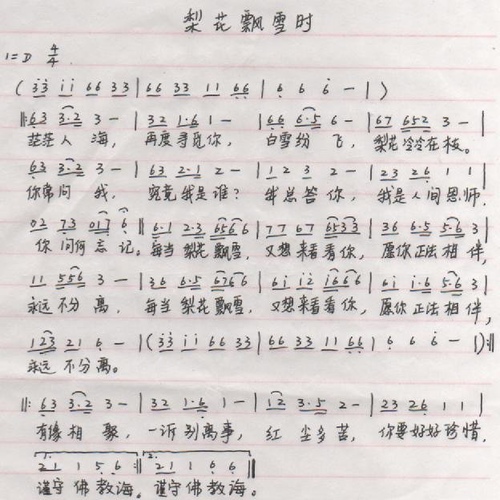 梨花飘雪时
1=D 4/4
(3̇3̇ i̇i̇ 66 33 | 66 33 11 6̣6̣ | 6̣ 6̣ 6̣ - | )
‖: 63 3·2 3 - | 32 1·6 1 - | 66 6·5 6 - | 67 652 3 - |
茫茫人海, 再度寻觅你, 白雪纷飞, 梨花冷冷在枝。
63 3·2 3 - | 63 2·1 2 - | 1 2 3 2 - | 23 26 1 1 |
你常问我, 究竟我是谁? 我总答你, 我是人间恩师.
02 73 017 6 ‖ 6·1 2·3 6566 | 77 67 6533 | 36 6·5 5·6 3 |
你问何忘记。每当梨花飘雪, 又想来看看你, 愿你正法相伴,
11 556 3 - | 36 6·5 6766 | 6i i2 i666 | 6i i·6 5·6 3 |
永远不分离, 每当梨花飘雪, 又想来看看你, 愿你正法相伴,
123 21 6 - | (33 ii 66 33 | 66 33 11 66 | 6 6 6 - | ) :‖
永远不分离。
‖: 63 3·2 3 - | 32 1·6 1 - | 12 3·5 2 - | 23 26 1 1 |
有缘相聚, 一诉别离事, 红尘多苦, 你要好好珍惜,
1. 21 1 5 6 :‖ 2. 21 1 6 6 ‖
谨守佛教诲。谨守佛教诲。